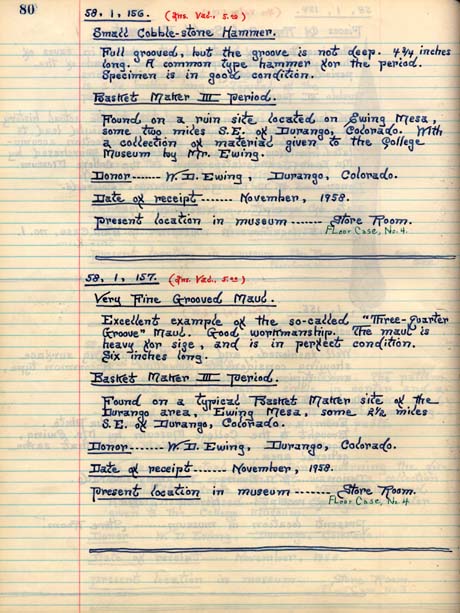 80
58, 1, 156. (Ins. Val., 5.00)
Small Cobble-stone Hammer.
Full grooved, but the groove is not deep. 4 3/4 inches
long. A common type hammer for the period.
Specimen is in good condition.
Basket Maker III period.
Found on a ruin site located on Ewing Mesa,
some two miles S.E. of Durango, Colorado. With
a collection of material given to the College
Museum by Mr. Ewing.
Donor------- W. D. Ewing, Durango, Colorado.
Date of receipt ------- November, 1958.
Present location in museum ------- Store Room.
Floor Case, No. 4.
58, 1, 157. (Ins. Val., 5.00)
Very Fine Grooved Maul.
Excellent example of the so-called "Three-quarter
Groove" Maul. Good workmanship. The maul is
heavy for size, and is in perfect condition.
Six inches long.
Basket Maker III period.
Found on a typical Basket Maker site of the
Durango area, Ewing Mesa, some 2 1/2 miles
S.E. of Durango, Colorado.
Donor------- W. D. Ewing, Durango, Colorado.
Date of receipt ------- November, 1958.
Present location in museum ------- Store Room.
Floor Case, No. 4